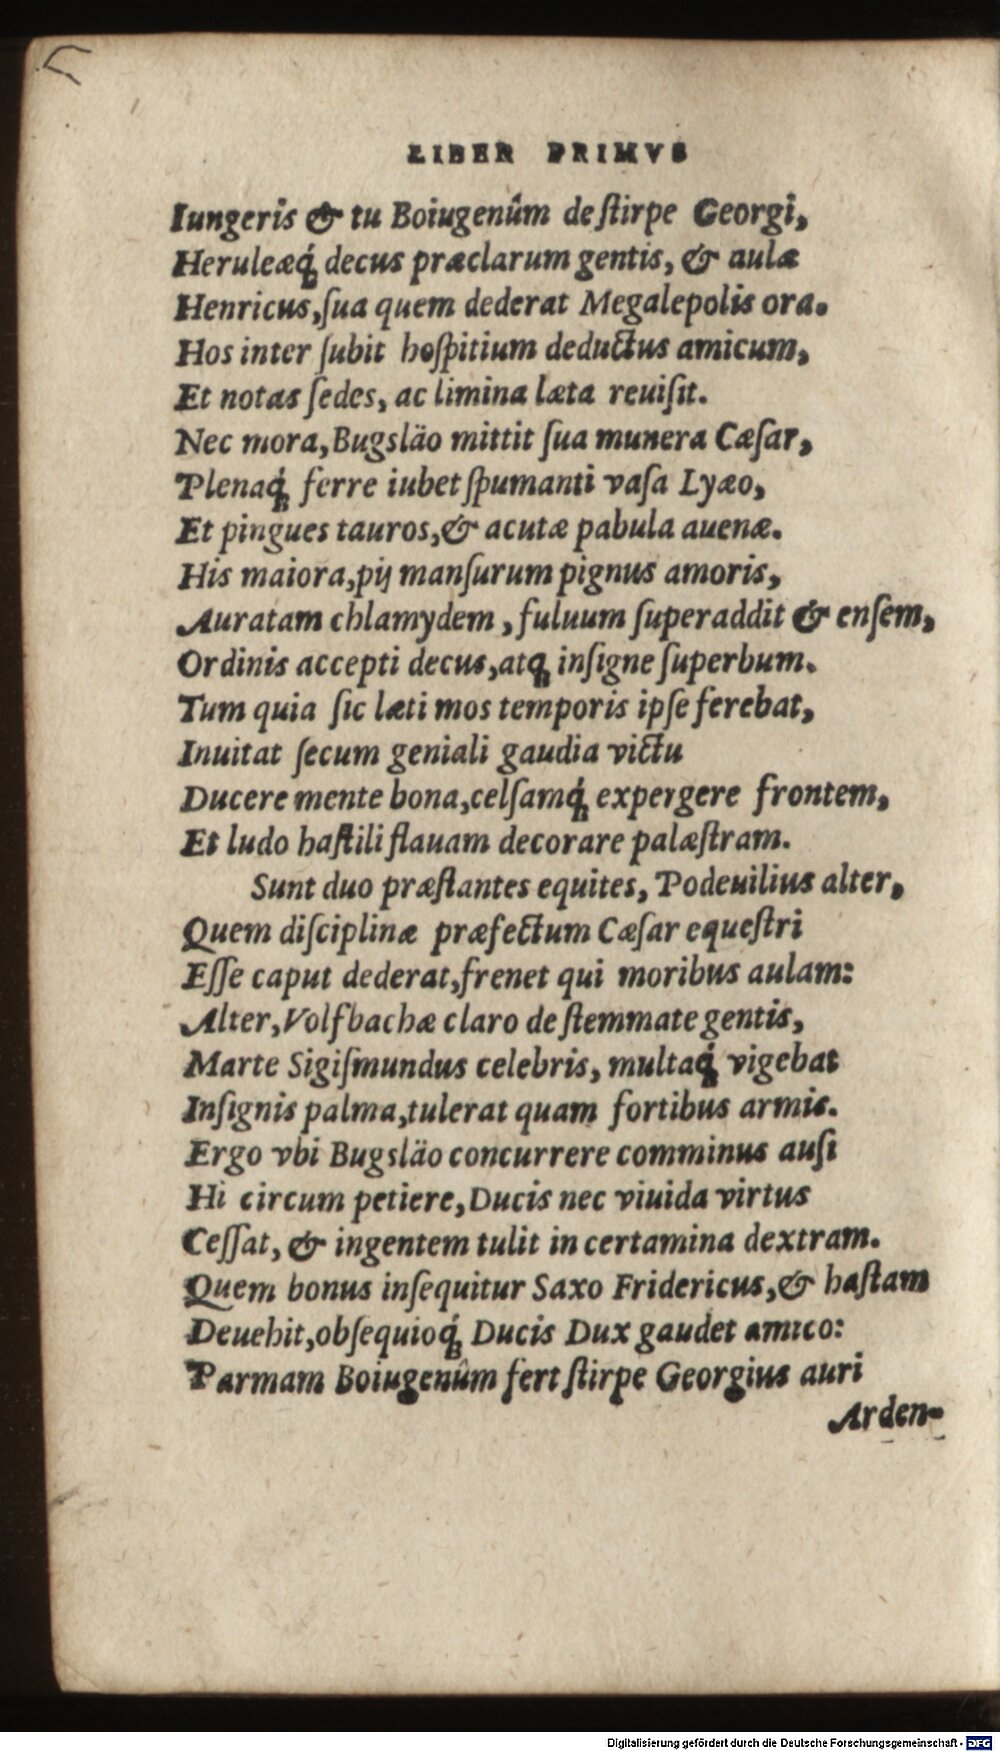 LIBER PRIMVS
Iungeris & tu Boiugenûm de ſtirpe Georgi,
Heruleæq́ꝫ decus præclarum gentis, & aulæ
Henricus, ſua quem dederat Megalepolis ora.
Hos inter ſubit hoſpitium deductus amicum,
Et notas ſedes, ac limina læta reuiſit.
Nec mora, Bugsläo mittit ſua munera Cæſar,
Plenaq́ꝫ ferre iubet ſpumanti vaſa Lyæo,
Et pingues tauros, & acutæ pabula auenæ.
His maiora, pij manſurum pignus amoris,
Auratam chlamydem, fuluum ſuperaddit & enſem,
Ordinis accepti decus, atqꝫ inſigne ſuperbum.
Tum quia ſic læti mos temporis ipſe ferebat,
Inuitat ſecum geniali gaudia victu
Ducere mente bona, celſamq́ꝫ expergere frontem,
Et ludo haſtili flauam decorare palæſtram.
Sunt duo præſtantes equites, Podeuilius alter,
Quem diſciplinæ præfectum Cæſar equeſtri
Eſſe caput dederat, frenet qui moribus aulam:
Alter, Volfbachæ claro de ſtemmate gentis,
Marte Sigiſmundus celebris, multaq́ꝫ vigebat
Inſignis palma, tulerat quam fortibus armis.
Ergo vbi Bugsläo concurrere comminus auſi
Hi circum petiere, Ducis nec viuida virtus
Ceſſat, & ingentem tulit in certamina dextram.
Quem bonus inſequitur Saxo Fridericus, & haſtam
Deuehit, obſequioq́ꝫ Ducis Dux gaudet amico:
Parmam Boiugenûm fert ſtirpe Georgius auri
Arden-
Digitalisierung gefördert durch die Deutsche Forschungsgemeinschaft - DFG